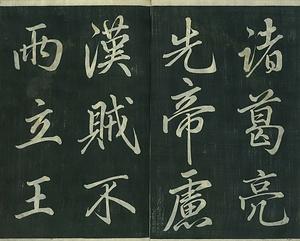 諸葛亮
先帝慮
漢賊不
兩立王